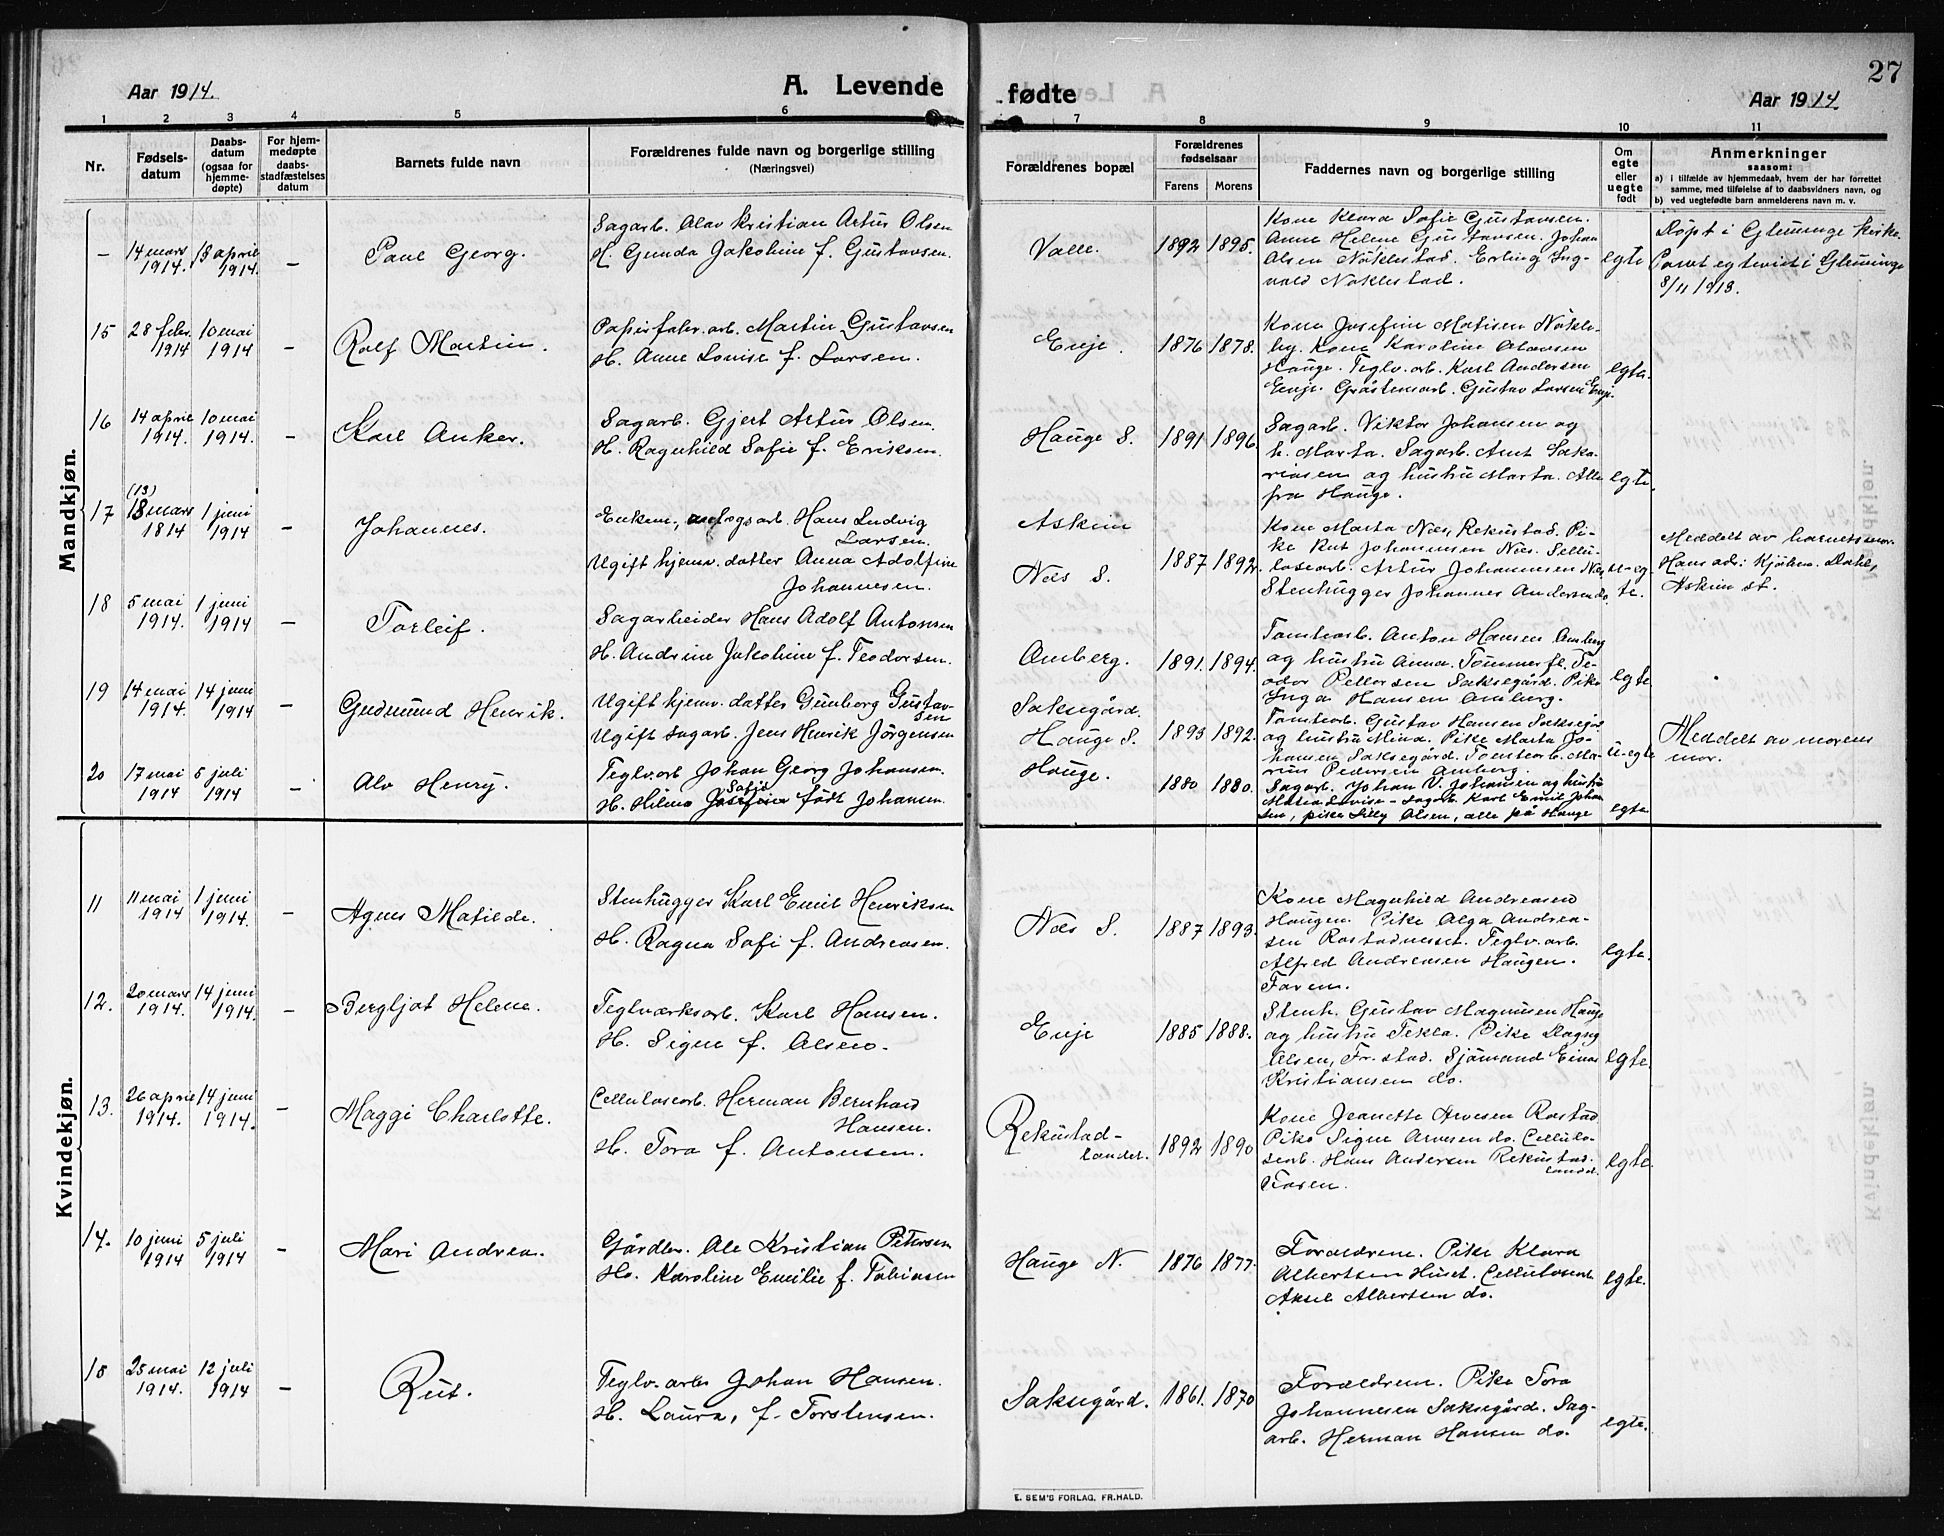 27
Aar 1914.
A. Levende
fødte
Aar 1914.
1 2 3 4 5 6 7 8 9 10 11
Nr.
Fødsels-
datum
Daabs-
datum
(ogsaa for
hjemme-
døpte)
For hjem-
medøpte
daabs-
stadfæstelses
datum
Barnets fulde navn
Forældrenes fulde navn og borgerlige stilling
(Næringsvei)
Forældrenes bopæl
Forældrenes
fødselsaar
Farens Morens
Faddernes navn og borgerlige stilling
Om
egte
eller
uegte
født
Anmerkninger
saasom:
a) i tilfælde av hjemmedaab, hvem der har forrettet
samme, med tilføielse af to daabsvidners navn, og
b) ved uegtefødte barn anmelderens navn m. v.
Mandkjøn.
–
14 mars
1914.
13 april
1914.
–
Paul Georg.
Sagarb. Olav Kristian Artur Olsen
H. Gunda Jakobine f. Gustavsen.
Valle.
1892 1895.
Kone Klara Sofie Gustavsen.
Anne Helene Gustavsen. Johan
Olsen Nöklestad. Erling Ing-
vald Nöklestad.
egte
Döpt i Glemminge kirke.
Paret egteviet i Glemminge
8/11 1913.
15
28 febr.
1914
10 mai
1914
–
Rolf Martin.
Papirfabr. arb. Martin Gustavsen
H. Anne Lovise f. Larsen.
Enje.
1876 1878.
Kone Josefine Matisen Nökle-
by. Kone Karoline Olavsen
Hauge. Teglv. arb. Karl Andersen
Enje. Gråstensarb. Gustav Larsen Enje.
egte.
16
14 april
1914.
10 mai
1914.
–
Karl Anker.
Sagarb. Gjert Artur Olsen.
H. Ragnhild Sofie f. Eriksen.
Hauge S.
1891 1896.
Sagarb. Viktor Johansen og
h. Marta. Sagarb. Amt Saka-
riasen og hustru Marta. Alle
fra Hauge.
egte.
17
(13)
18 mars
1814
1 juni
1914
–
Johannes.
Enkem., anlegsarb. Hans Ludvig
Larsen.
Ugift hjemv. datter Anna Adolfine
Johannesen.
Askim
Næs S.
1887 1892
Kone Marta Næs, Rekustad. Pi-
ke Rut Johannesen Næs. Sellu-
losearb. Artur Johannesen Næs,
Stenhugger Johannes Andersen do.
u-eg-
te.
Meddelt av barnets mor.
Hans adr: Kjöbm. Dahl,
Askim st.
18
5 mai
1914.
1 juni
1914
–
Torleif.
Sagarbeider Hans Adolf Antonsen
H. Andrine Jakobine f. Teodorsen.
Omberg.
1891. 1894.
Tomtearb. Anton Hansen Omberg
og hustru Anna. Tömmerfl. Te-
odor Pettersen Saksegård. Pike
Inga Hansen Omberg.
egte
19
14 mai
1914.
14 juni
1914
–
Gudmund Henrik.
Ugift hjemv. datter Gunborg Gustav-
sen
Ugift sagarb. Jens Henrik Jörgensen
Saksegård.
Hauge S.
1893 1892.
Tomtearb. Gustav Hansen Saksegård
og hustru Mina. Pike Marta Jo-
hansen Saksegård. Tomtearb. Ma-
rius Pedersen Omberg.
u-egte
Meddelt av morens
mor.
20
17 mai
1914
5 juli
1914
–
Alv Henry.
Teglv. arb Johan Georg Johansen.
Sofie
H. Hilma Josefine født Johansen.
Hauge.
1880 1880.
Sagarb. Johan V. Johansen og hustru
Maria Lovise – Sagarb. Karl Emil Johan
sen, pike Lilly Olsen, alle på Hauge
egte
Kvindekjøn.
11
11 mai
1914
1 juni
1914.
–
Agnes Matilde.
Stenhugger Karl Emil Henriksen
H. Ragna Sofi f. Andreasen.
Næs S.
1887 1893.
Kone Magnhild Andreasen
Haugen. Pike Olga Andrea-
sen Rostadneset. Teglv. arb.
Alfred Andreasen Haugen.
Faren.
egte.
12.
20 mars
1914.
14 juni
1914.
–
Bergljot Helene.
Teglværksarb. Karl Hansen.
H. Signe f. Olsen.
Enje
1885 1888.
Stenh. Gustav Magnusen Hauge
og hustru Tekla. Pike Dagny
Olsen, Fr. stad. Sjömand Einar
Kristiansen do.
egte.
13.
26 april
1914.
14 juni
1914.
–
Maggi Charlotte.
Cellulosearb. Herman Bernhard
Hansen.
H. Tora f. Antonsen.
Rekustad-
landet.
1892 1890
Kone Jeanette Arvesen Rostad
Pike Signe Arvesen do. Cellulo-
searb. Hans Andersen Rekustad-
landet.
Faren.
egte.
14.
10 juni
1914
5 juli
1914
–
Mari Andrea.
Gårdbr. Ole Kristian Petersen
Hu. Karoline Emilie f. Tobiasen
Hauge N.
1876 1877.
Forældrene. Pike Klara
Albertsen Huset. Cellulosearb.
Aksel Albertsen do.
egte.
15
25 mai
1914.
12 juli
1914
–
Rut.
Teglv. arb. Johan Hansen.
H. Laura, f. Torstensen.
Saksegård.
1861. 1870
Forældrene. Pike Tora
Johannesen Saksegård. Sag-
arb. Herman Hansen do.
egte.
E. SEM'S FORLAG, FR.HALD.